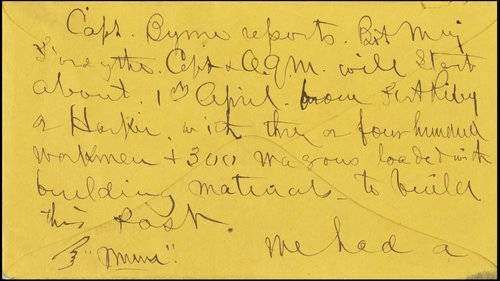 Capt. Byrne reports. Bvt Maj
Forsythe. Capt & A.Q.M. will start
about. 1st April. from Fort Riley
or Harker. with three or four hundred
workmen + 300 wagons loaded with
building materials to build
this Post.
We had a